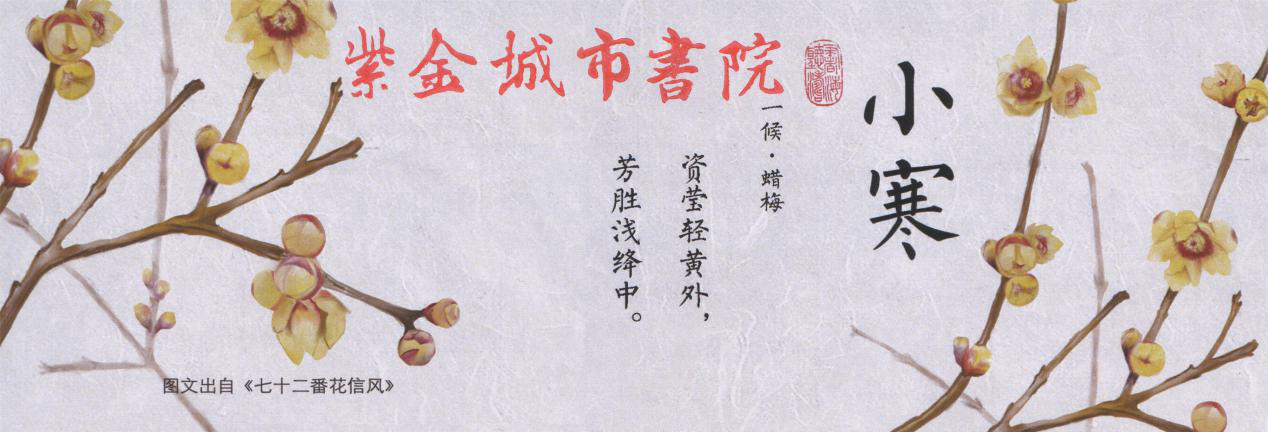 紫金城市書院
小寒
一候·蜡梅
资莹轻黄外，
芳胜浅绛中。
图文出自《七十二番花信风》